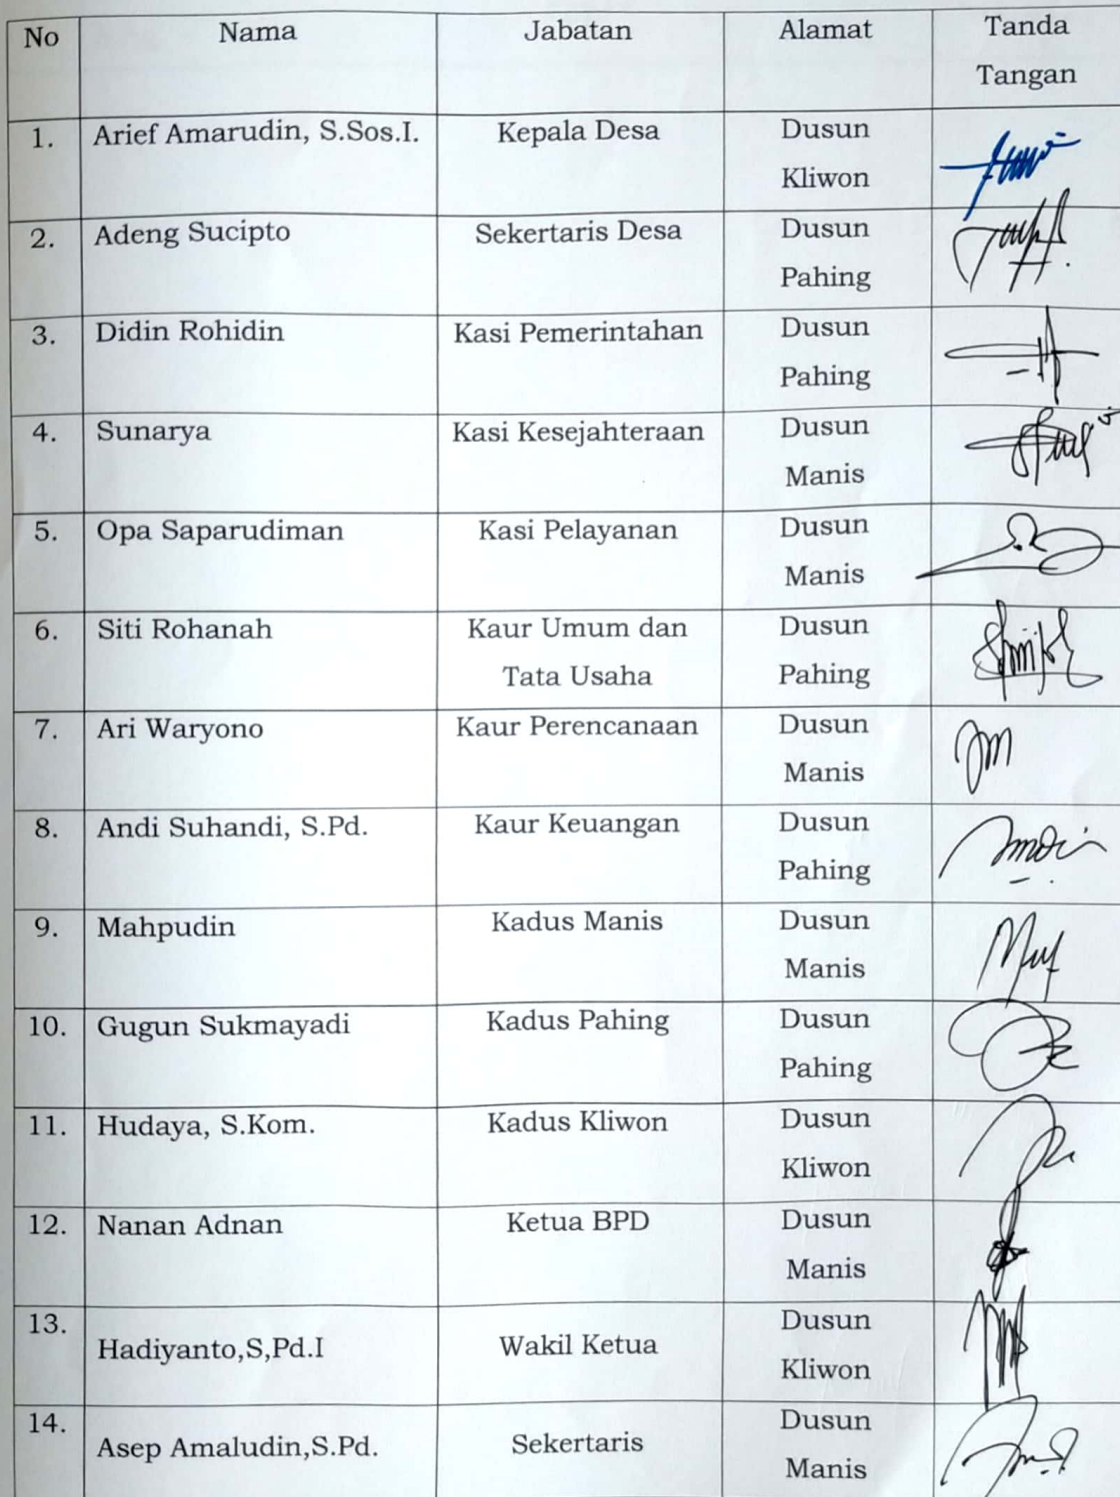 No Nama Jabatan Alamat Tanda
Tangan
1. Arief Amarudin, S.Sos.I. Kepala Desa Dusun
Kliwon
2. Adeng Sucipto Sekertaris Desa Dusun
Pahing
3. Didin Rohidin Kasi Pemerintahan Dusun
Pahing
4. Sunarya Kasi Kesejahteraan Dusun
Manis
5. Opa Saparudiman Kasi Pelayanan Dusun
Manis
6. Siti Rohanah Kaur Umum dan Dusun
Tata Usaha Pahing
7. Ari Waryono Kaur Perencanaan Dusun
Manis
8. Andi Suhandi, S.Pd. Kaur Keuangan Dusun
Pahing
9. Mahpudin Kadus Manis Dusun
Manis
10. Gugun Sukmayadi Kadus Pahing Dusun
Pahing
11. Hudaya, S.Kom. Kadus Kliwon Dusun
Kliwon
12. Nanan Adnan Ketua BPD Dusun
Manis
13. Dusun
Hadiyanto,S,Pd.I Wakil Ketua Kliwon
14. Dusun
Asep Amaludin,S.Pd. Sekertaris Manis